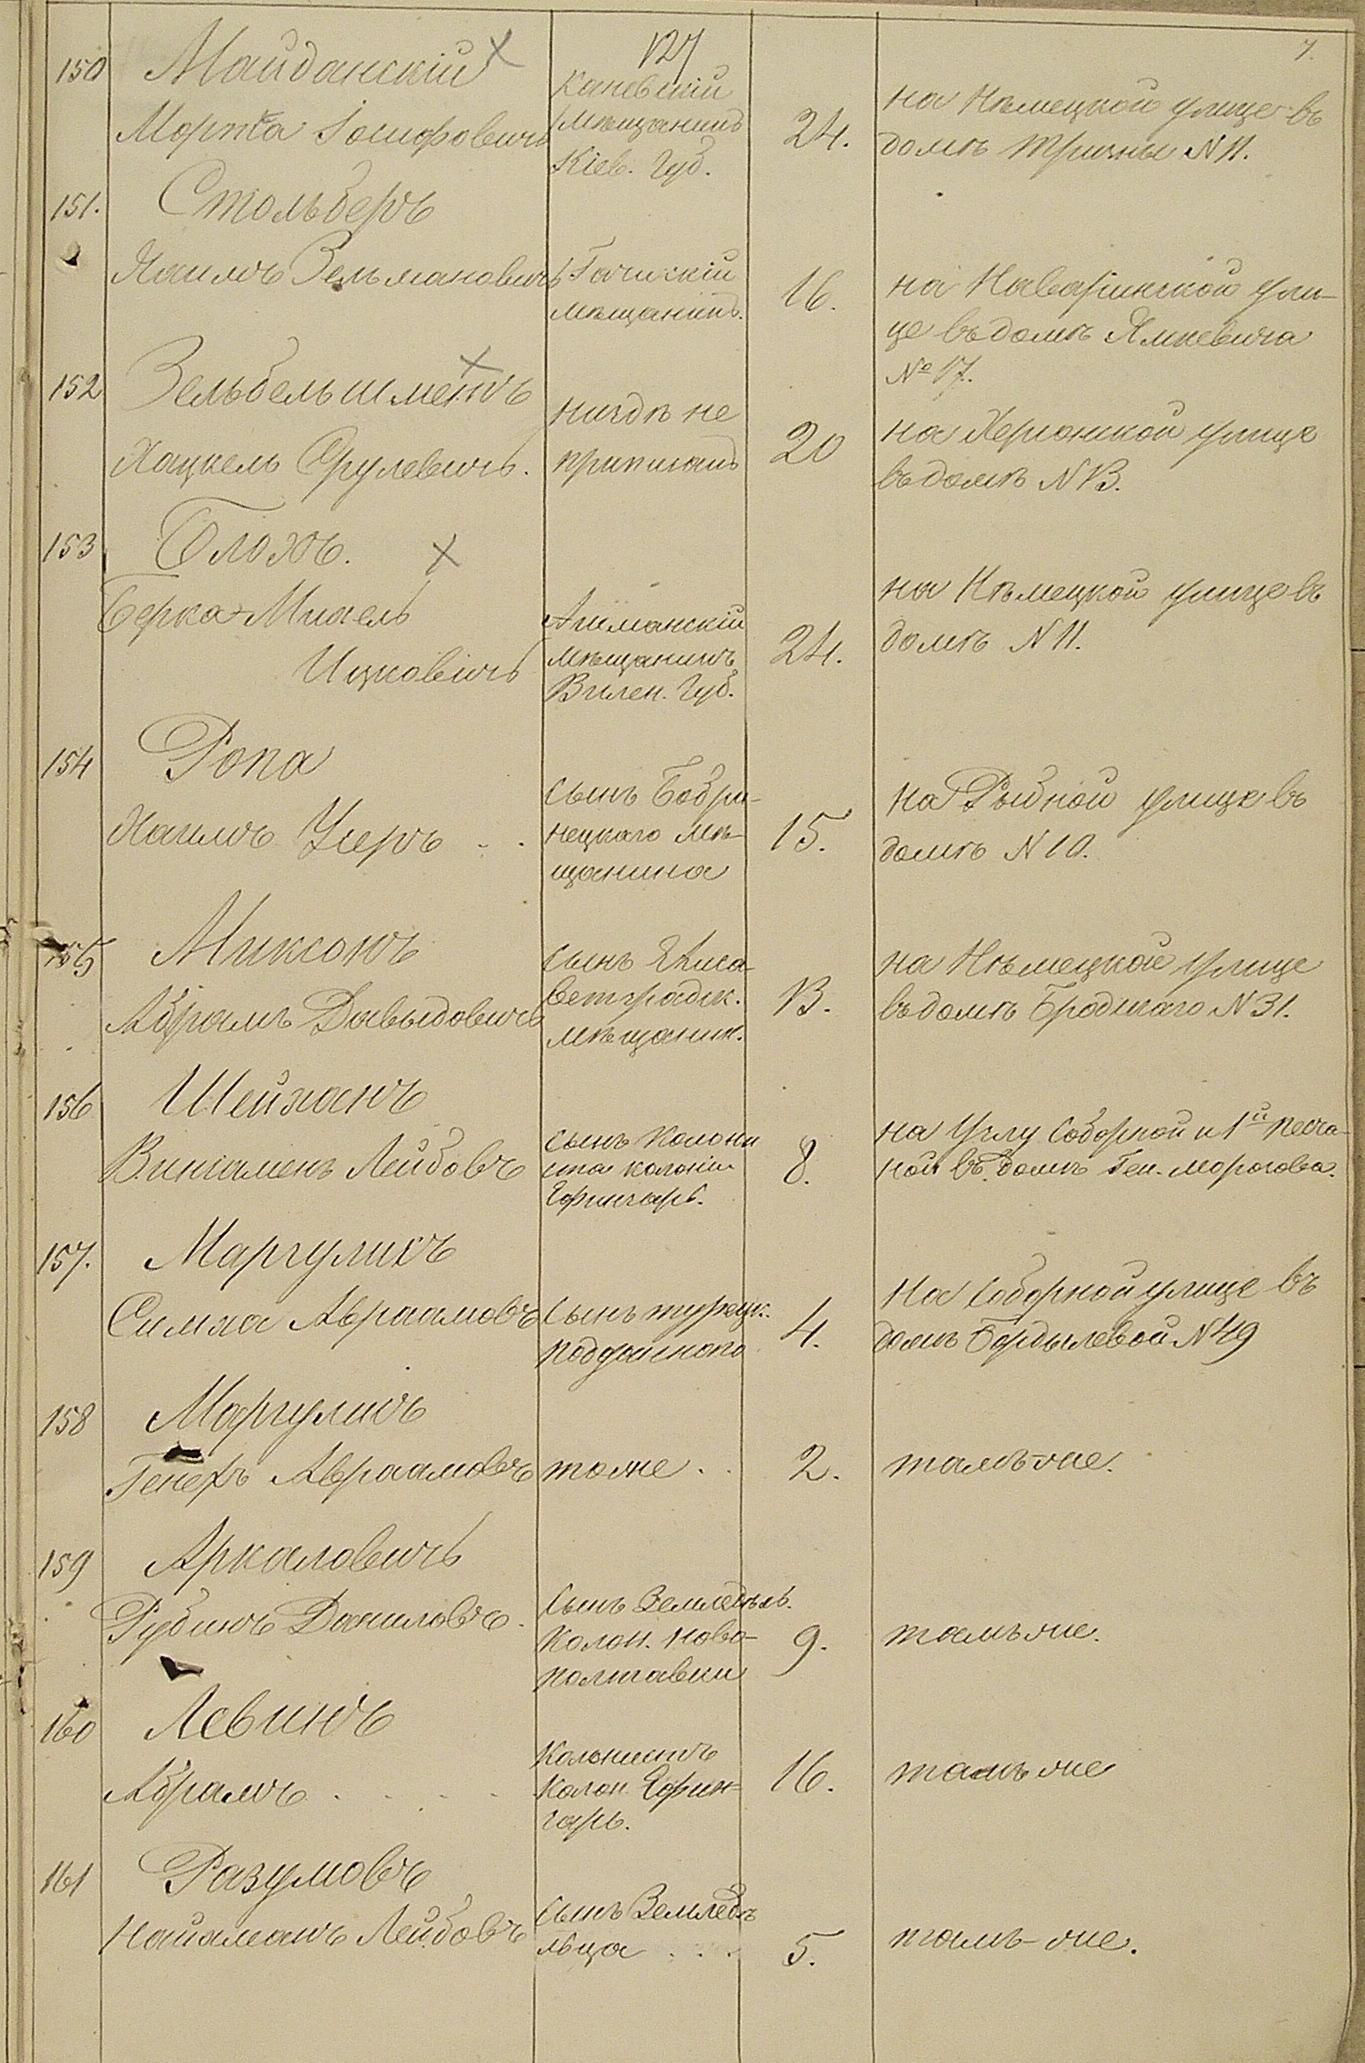 127
7.
150 Майданскій
Мортка Іосифовичъ
Каневскій
мѣщанинъ
Кіев. Губ.
24.
на Нѣмецкой улице въ
домѣ Тричны N 11.
151. Стольберъ
Хаимъ Зельмановичъ
мѣщанинъ.
16.
на Наваринской ули-
це въ домѣ Ямпевича
№ 17.
152 Зельбельшментъ
Хацкель Срулевичъ.
нигдѣ не
приписанъ
20
на Херсонской улице
въ домѣ N 13.
153 Блохъ.
Берка-Михель
Ицковичъ
Ашманскій
мѣщанинъ
Вилен. Губ.
24.
на Нѣмецкой улице въ
домѣ N 11.
154 Ропа
Хаимъ Ушеръ
сынъ Бобри-
нецкаго мѣ-
щанина
15.
на Рыбной улице въ
домѣ N 10.
155 Миксонъ
Абрамъ Давыдовичъ
сынъ Елиса-
ветградск.
мѣщанин.
13.
на Нѣмецкой улице
въ домѣ Бродскаго N 31.
156 Шейханъ
Виніаменъ Лейбовъ
сынъ колони
ста колоніи
Ефингарь.
8.
на Углу Соборной и 1й песча-
ной въ домѣ Ген. Морозова.
157. Маргулихъ
Симха Авраамовъ
сынъ турецк.
подданнаго
4.
на Соборной улице въ
домѣ Бардылевой N 49
158 Маргулихъ
Генехъ Авраамовъ
тоже . .
2.
тамъ-же.
159 Аркаловичъ
Рубинъ Даниловъ.
Сынъ Земледѣль.
Колон. Ново-
полтавки
9.
тамъ же.
160 Левинъ
Абрамъ . . . .
Колонистъ
Колон. Ефин-
гарь.
16.
тамъ же
161 Разумовъ
Найаманъ Лейбовъ
сынъ Земледѣ
льца . . .
5.
тамъ-же.